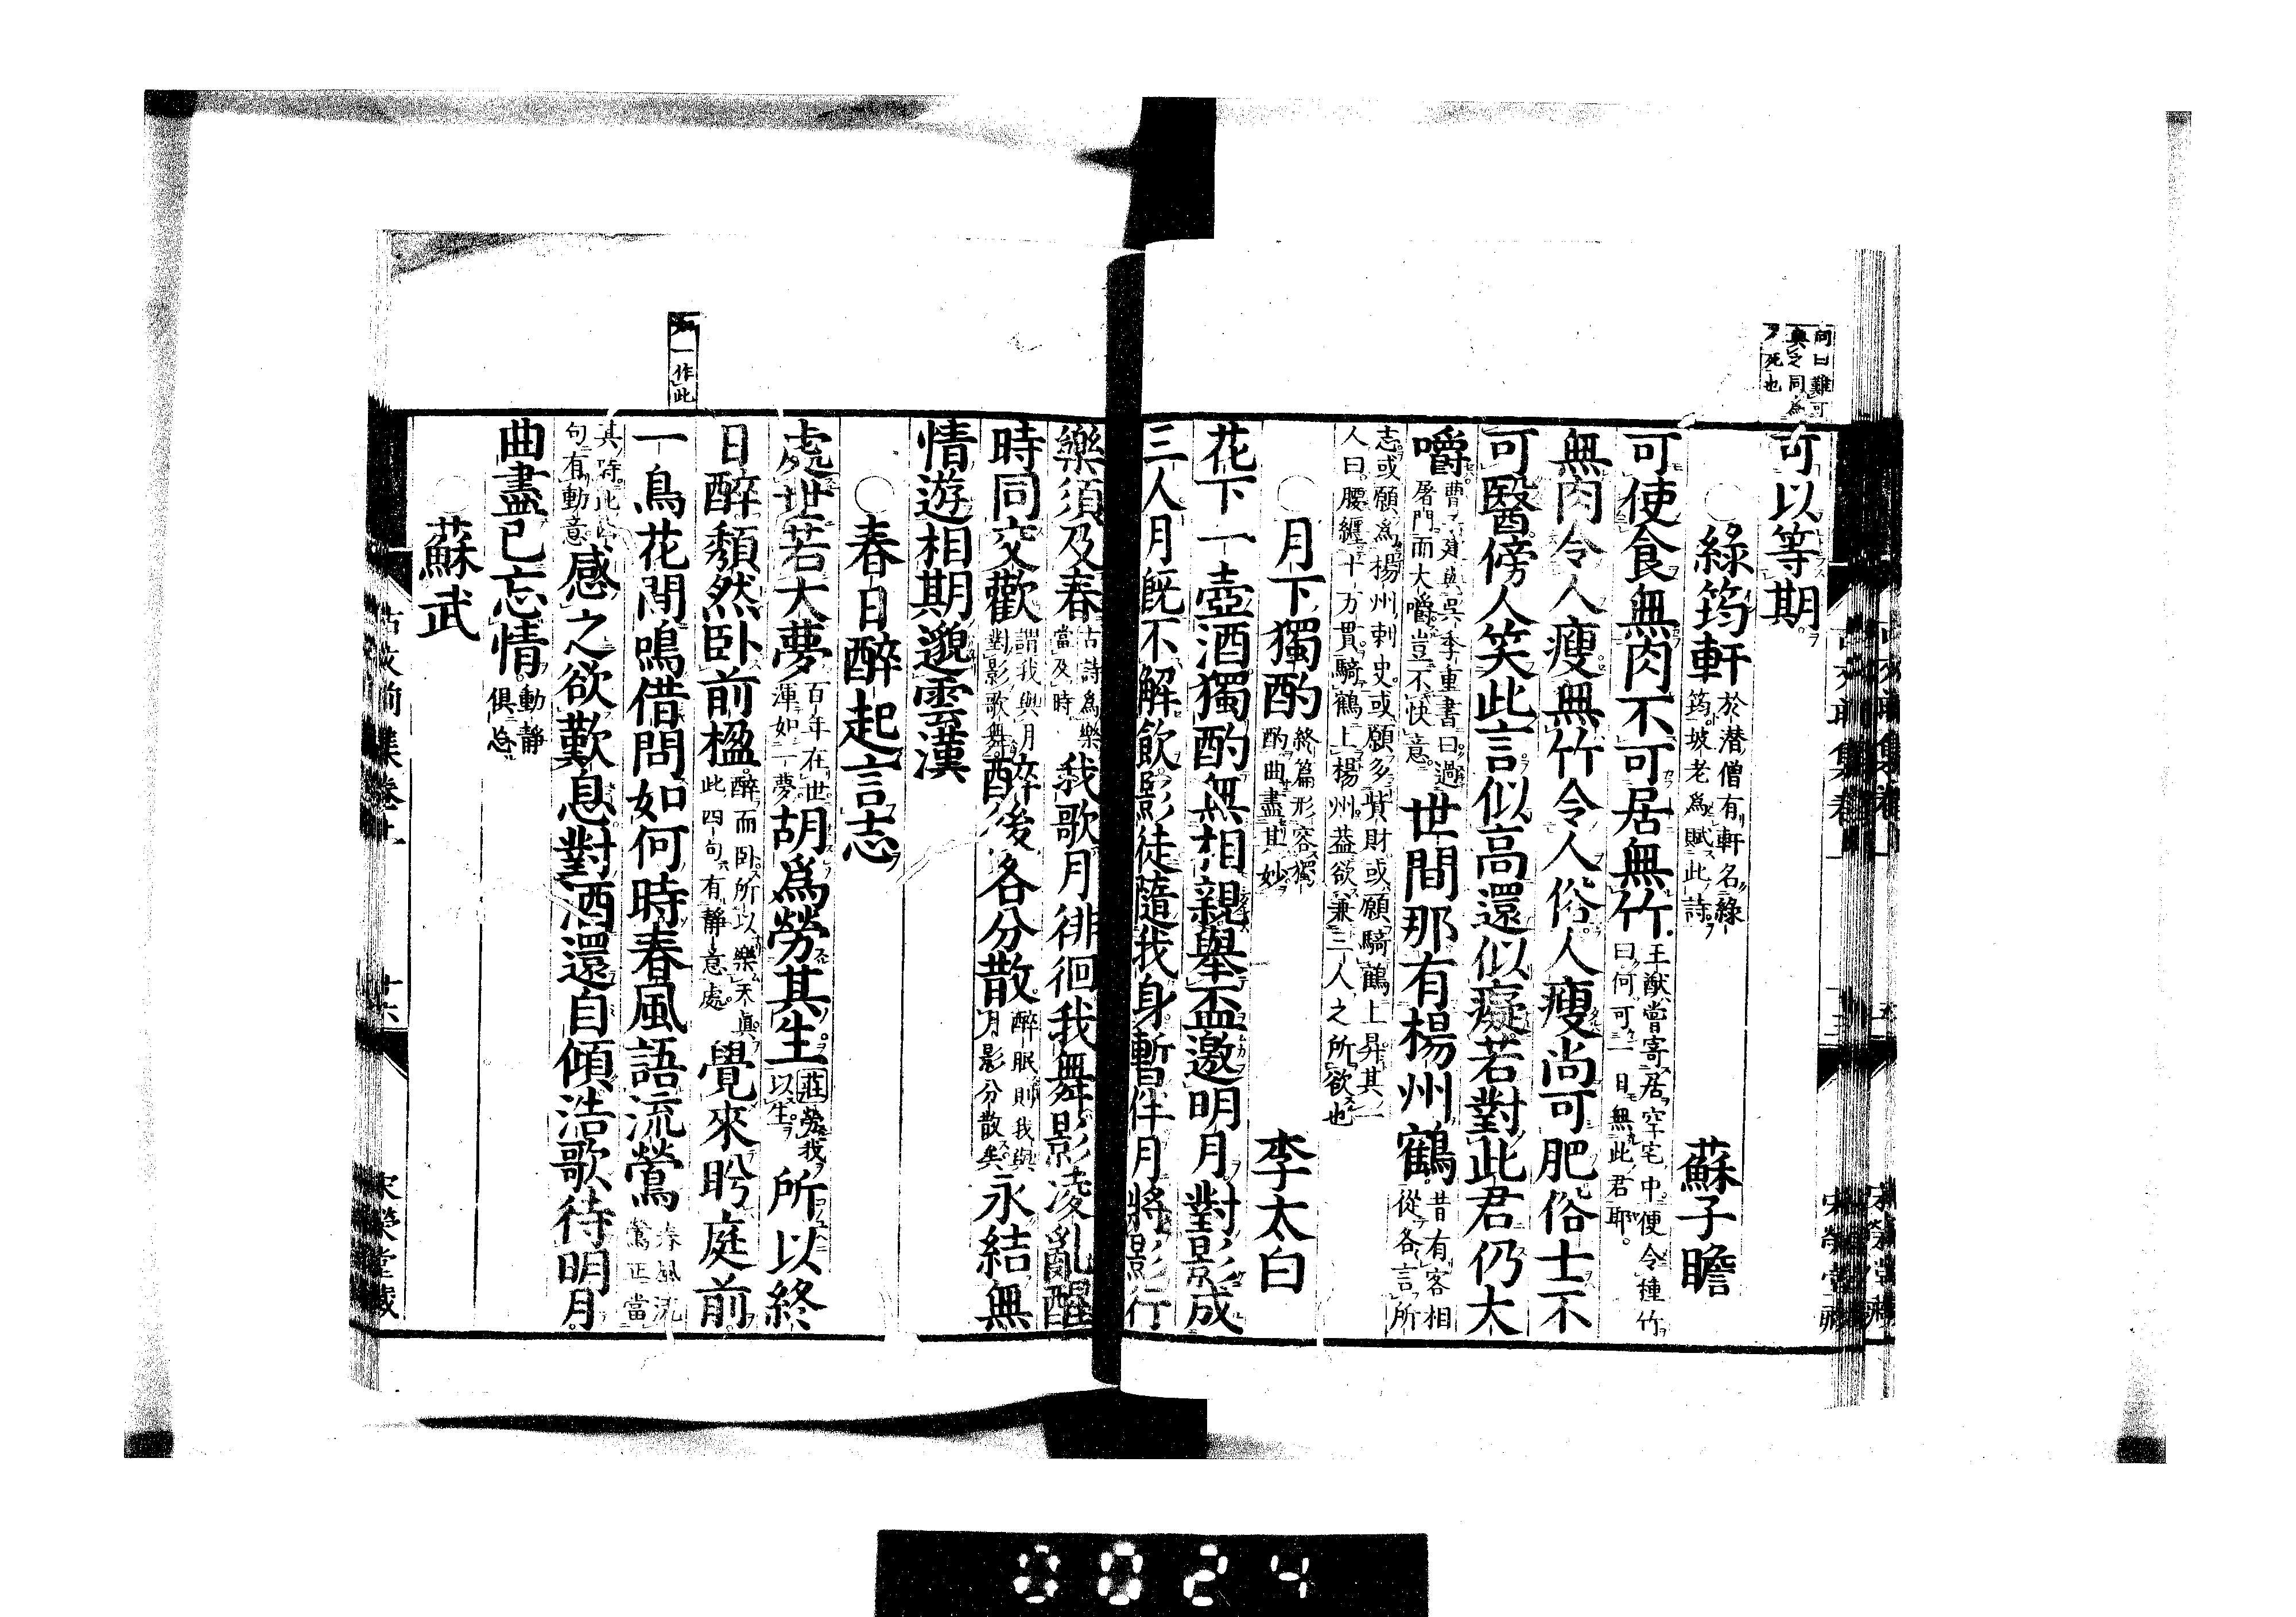 何曰難可
與之同爲
夕死也
可以等期
○綠筠軒 於潜僧有軒名綠筠坡老爲賦此詩 蘇子瞻
可使食無肉不可居無竹 王猷嘗寄居空宅中便令種竹曰何可一日無此君耶
無肉令人瘦無竹令人俗人瘦尚可肥俗士不
可醫傍人笑此言似高還似癡若對此君仍大
嚼 曹子建與吳季重書曰過屠門而大嚼豈不快意 世間那有楊州鶴 昔有客相從各言所
志或願爲楊州刺史或願多貲財或願騎鶴上昇其一人曰腰纒十万貫騎鶴上楊州葢欲兼三人之所欲也
○月下獨酌 終篇形容獨酌曲盡其妙 李太白
花下一壺酒獨酌無相親舉盃邀明月對影成
三人月旣不解飲影徒隨我身暫伴月將影行
樂須及春 古詩爲樂當及時 我歌月徘徊我舞影凌亂醒
時同交歡 謂我與月對影歌舞 醉後各分散 醉眠則我與月影分散矣 永結無
情遊相期邈雲漢
○春日醉起言志
處世若大夢 百年在世渾如一夢 胡爲勞其生 莊勞我以生 所以終
日醉頹然卧前楹 醉而卧所以樂天眞此四句有靜意處 覺來盻庭前
一作此
一鳥花間鳴借問如何時春風語流鶯 春風流鶯正當
其時此句有動意 感之欲歎息對酒還自傾浩歌待明月
曲盡已忘情 動靜俱忘
○蘇武
古文前集卷上
廿六
宋榮堂藏